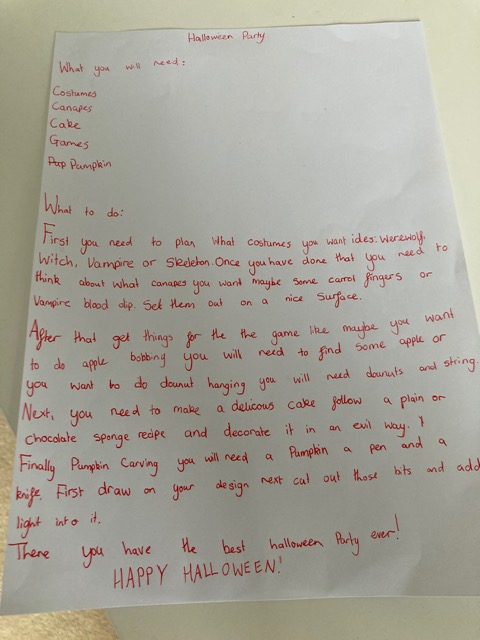 Halloween Party
What you will need:
Costumes
Canapes
Cake
Games
Pumpkin
What to do:
First you need to plan what costumes you want ides: Werewolf,
Witch, Vampire or Skeleton. Once you have done that you need to
think about what canapes you want maybe some carrot fingers or
Vampire blood dip. Set them out on a nice surface.
After that get things for the the game like maybe you want
to do apple bobbing you will need to find some apple or
you want to do dounut hanging you will need dounuts and string.
Next, you need to make a delicous cake follow a plain or
chocolate sponge recipe and decorate it in an evil way.
Finally Pumpkin Carving you will need a Pumpkin a pen and a
knife. First draw on your design next cut out those bits and add
light into it.
There you have the best halloween Party ever!
HAPPY HALLOWEEN!